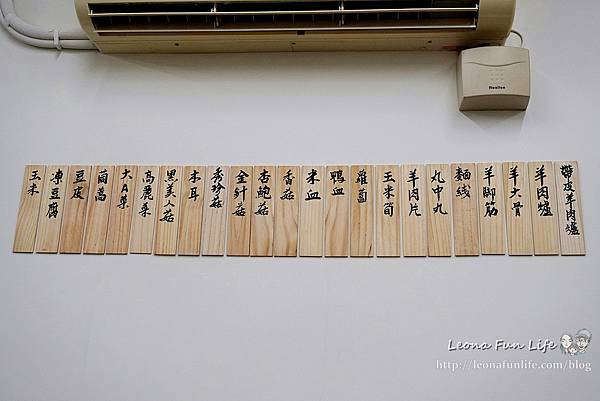 Realtee
帶皮羊肉爐
羊肉爐
羊大骨
羊腳筋
麵线
丸中丸
羊肉片
玉米筍
蘿蔔
鴨血
米血
香菇
杏鮑菇
金針菇
秀珍菇
木耳
黑美人菇
高麗菜
大A菜
茼蒿
豆皮
凍豆腐
玉米
Leona Fun Life
http://leonafunlife.com/blog